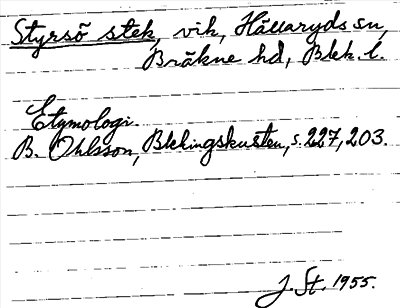 Styrsö stek, vik, Hällaryds sn,
Bräkne hd, Blek. l.
Etymologi.
B. Ohlsson, Blekingskusten, s. 227, 203.
J. St. 1955.